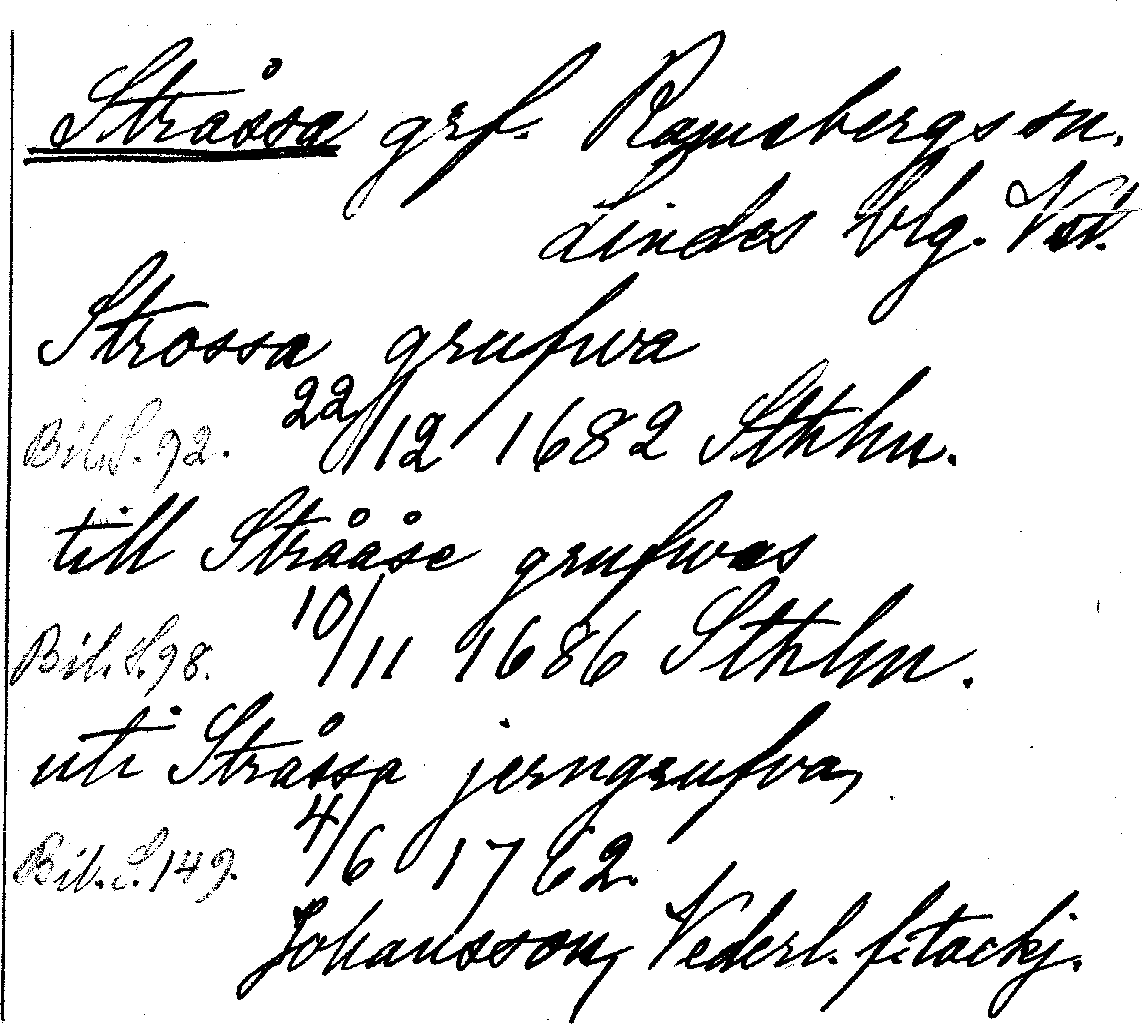 Stråssa grf. Ramsbergs sn.
Lindes blg. Vstm.
Strossa grufwa
Bil. S. 92. 22/12 1682 Sthlm.
till Strååse grufwas
Bil. S. 98. 10/11 1686 Sthlm.
uti Stråssa jerngrufva,
Bil. S. 149. 4/6 1762.
Johansson, Vederl. f.